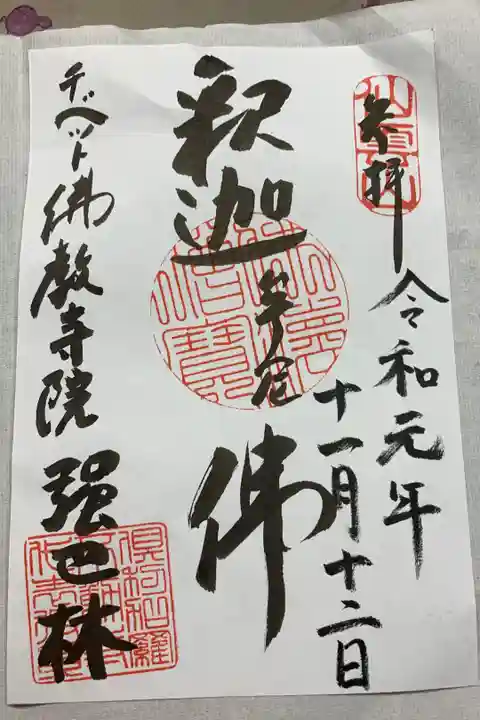 参拝 令和元年
十一月十二日
釈迦牟尼佛
チベット佛教寺院 强巴林